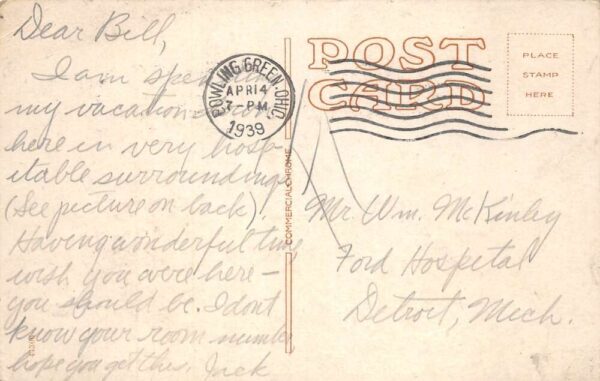 Dear Bill,
I am
my vacation
here in very hosp-
itable surroundings
(See picture on back).
Having wonderful time
wish you were here –
you should be. I dont
know your room number
hope you get this. Jack
BOWLING GREEN, OHIO
APR 14
7-PM
1939
POST
CARD
PLACE
STAMP
HERE
COMMERCIALCHROME
Mr. Wm. McKinley
Ford Hospital
Detroit, Mich.